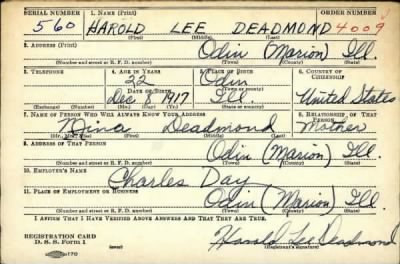 SERIAL NUMBER 1. NAME (Print) ORDER NUMBER
560 HAROLD LEE DEADMOND 4009
(First) (Middle) (Last)
2. ADDRESS (Print)
Odin (Marion) Ill.
(Number and street or R. F. D. number) (Town) (County) (State)
3. TELEPHONE 4. AGE IN YEARS 5. PLACE OF BIRTH 6. COUNTRY OF CITIZENSHIP
22 Odin
DATE OF BIRTH (Town or county)
Dec 9 1917 Ill United States
(Exchange) (No.) (Mo.) (Day) (Yr.) (State or country)
7. NAME OF PERSON WHO WILL ALWAYS KNOW YOUR ADDRESS 8. RELATIONSHIP OF THAT PERSON
Nina Deadmond Mother
(Mr., Mrs., Miss) (First) (Middle) (Last)
9. ADDRESS OF THAT PERSON
Odin (Marion) Ill.
(Number and street or R. F. D. number) (Town) (County) (State)
10. EMPLOYER'S NAME
Charles Day
11. PLACE OF EMPLOYMENT OR BUSINESS
Odin (Marion) Ill.
(Number and street or R. F. D. number) (Town) (County) (State)
I AFFIRM THAT I HAVE VERIFIED ABOVE ANSWERS AND THAT THEY ARE TRUE.
REGISTRATION CARD
D. S. S. Form 1 Harold Lee Deadmond
(over) (Registrant's signature)